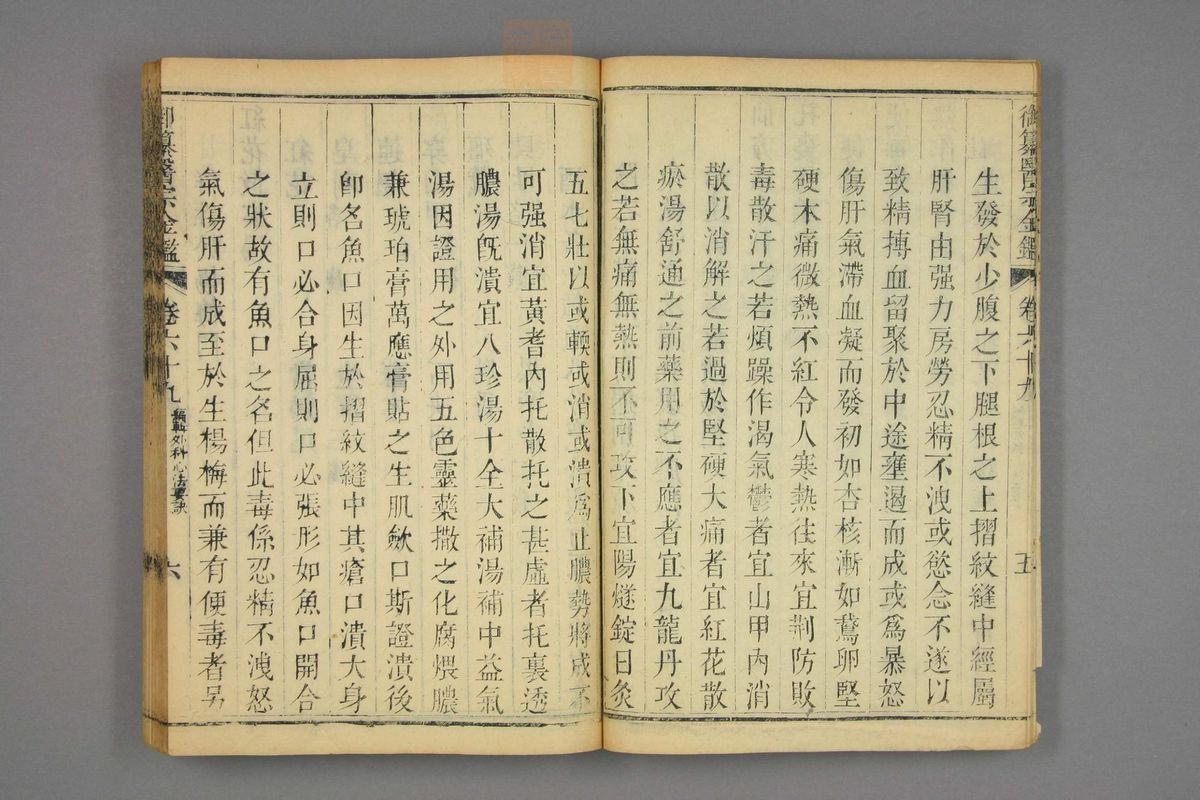 御纂醫宗金鑑 卷六十九 五
生發於少腹之下腿根之上摺紋縫中經屬
肝腎由强力房勞忍精不洩或慾念不遂以
致精搏血留聚於中途壅遏而成或爲暴怒
傷肝氣滯血凝而發初如杏核漸如鵞卵堅
硬木痛微熱不紅令人寒熱往來宜荆防敗
毒散汗之若煩躁作渴氣鬱者宜山甲內消
散以消解之若過於堅硬大痛者宜紅花散
瘀湯舒通之前藥用之不應者宜九龍丹攻
之若無痛無熱則不可攻下宜陽燧錠日灸
五七壯以或輭或消或潰爲止膿勢將成不
可强消宜黃耆內托散托之甚虛者托裏透
膿湯旣潰宜八珍湯十全大補湯補中益氣
湯因證用之外用五色靈藥撒之化腐煨膿
兼琥珀膏萬應膏貼之生肌斂口斯證潰後
卽名魚口因生於摺紋縫中其瘡口潰大身
立則口必合身屈則口必張形如魚口開合
之狀故有魚口之名但此毒係忍精不洩怒
氣傷肝而成至於生楊梅而兼有便毒者另
御纂醫宗金鑑 卷六十九 編輯外科心法要訣 六